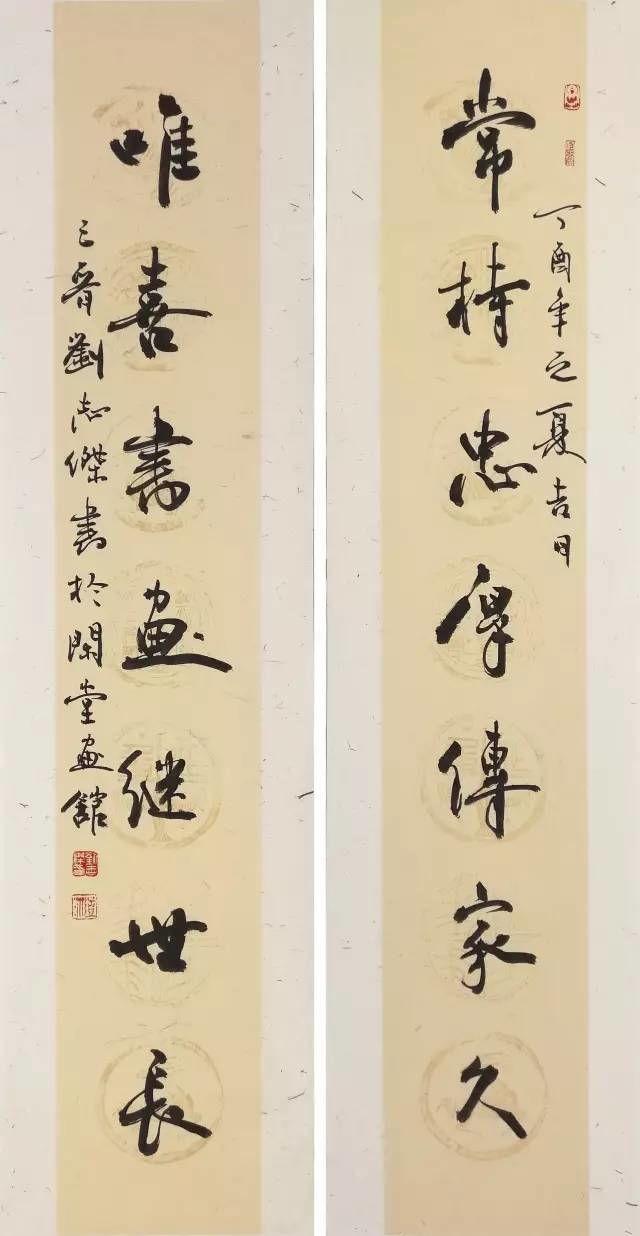 丁酉年之夏吉日
常持忠厚傳家久
唯喜書畫継世長
三晋劉志傑書於閑堂畫舘